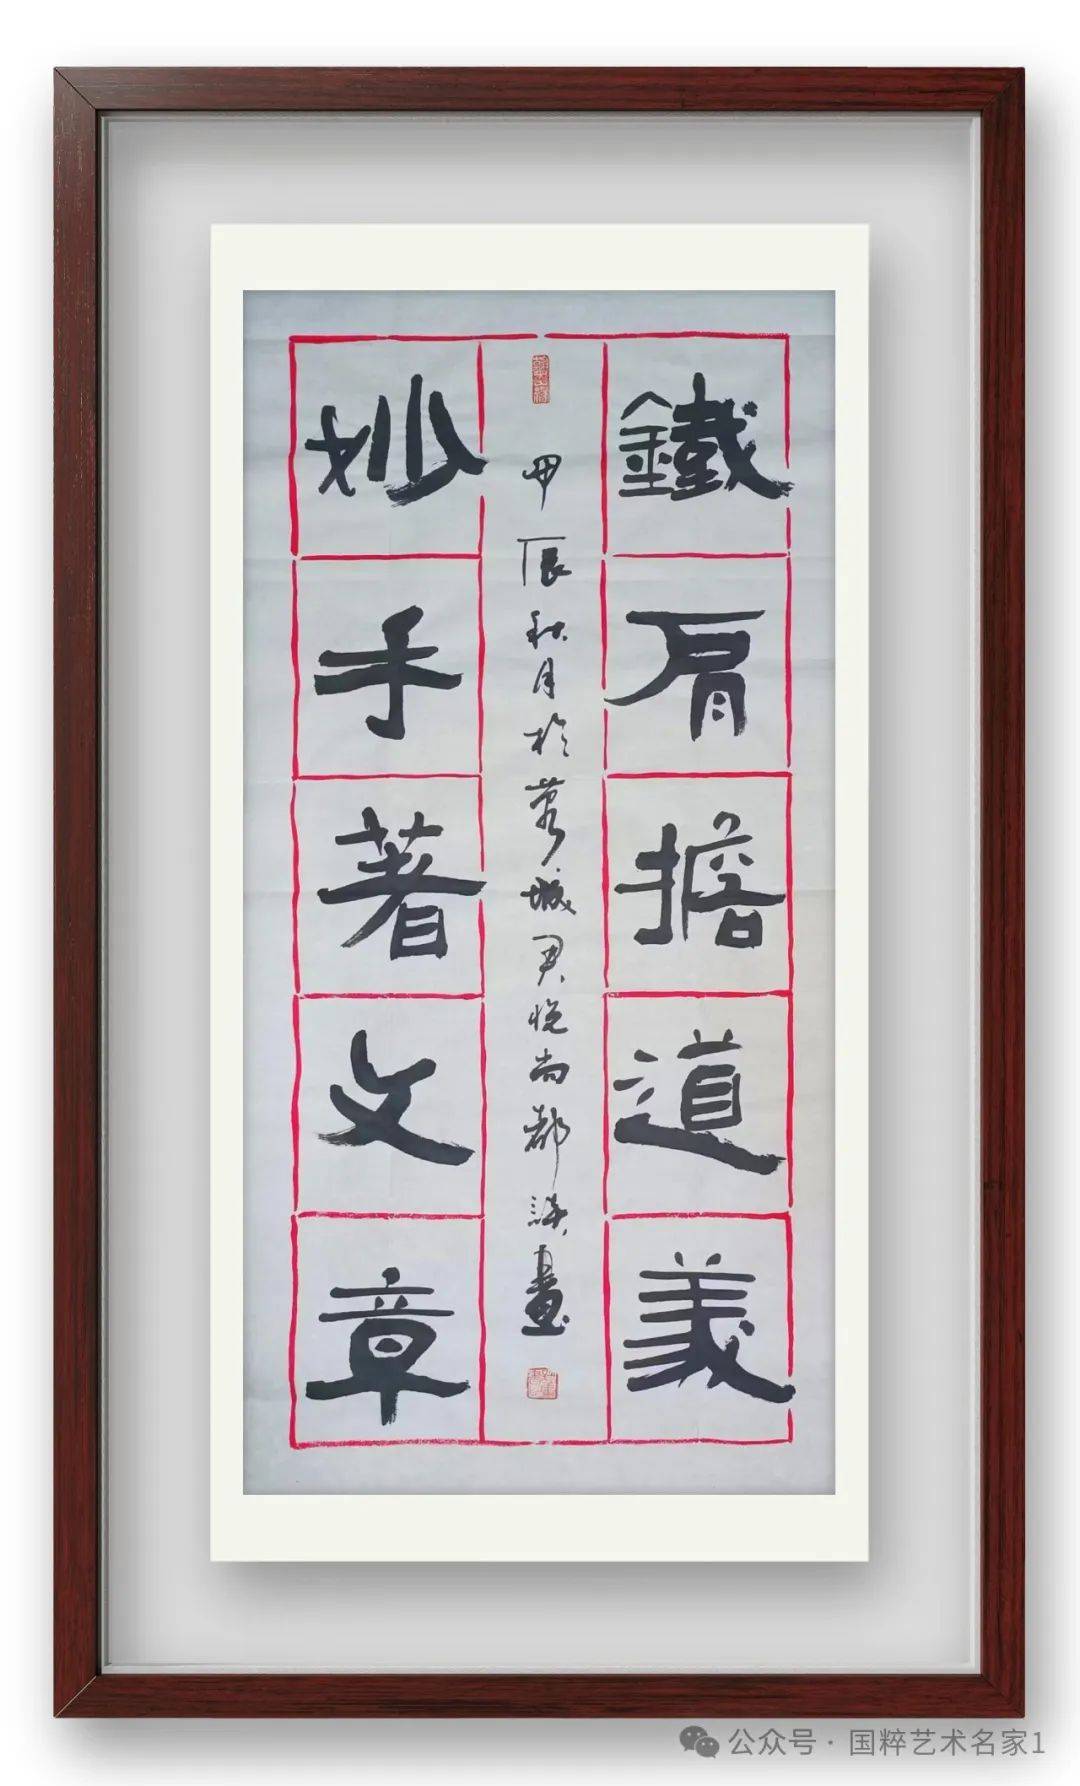 鐵肩擔道義
甲辰秋月於蓉城君悦尚都洪畫
妙手著文章
公众号·国粹艺术名家1